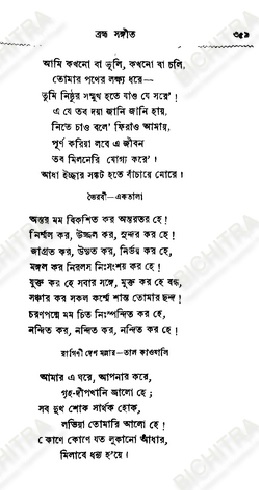 ব্রহ্ম সঙ্গীত ৩৫৯
আমি কখনো বা ভুলি, কখনো বা চলি,
তোমার পথের লক্ষ্য ধরে—
তুমি নিষ্ঠুর সম্মুখ হতে যাও যে সরে'!
এ যে তব দয়া জানি জানি হায়,
নিতে চাও বলে' ফিরাও আমায়,
পূর্ণ করিয়া লবে এ জীবন
তব মিলনেরি যোগ্য করে'।
আধা ইচ্ছার সঙ্কট হতে বাঁচায়ে মোরে।
ভৈরবী—একতালা
অন্তর মম বিকশিত কর অন্তরতর হে!
নির্ম্মল কর, উজ্জল কর, সুন্দর কর হে!
জাগ্রত কর, উদ্যত কর, নির্ভয় কর হে!
মঙ্গল কর নিরলস নিঃসংশয় কর হে!
যুক্ত কর হে সবার সঙ্গে, মুক্ত কর হে বন্ধ,
সঞ্চার কর সকল কর্ম্মে শান্ত তোমার ছন্দ!
চরণপদ্মে মম চিত নিঃস্পন্দিত কর হে,
নন্দিত কর, নন্দিত কর, নন্দিত কর হে!
রাগিণী দেশ মল্লার—তাল কাওয়ালি
আমার এ ঘরে, আপনার করে,
গৃহ-দীপখানি জ্বালো হে;
সব দুখ শোক সার্থক হোক,
লভিয়া তোমারি আলো হে!
কোণে কোণে যত লুকানো আঁধার,
মিলাবে ধন্য হ'য়ে।
BICHITRA